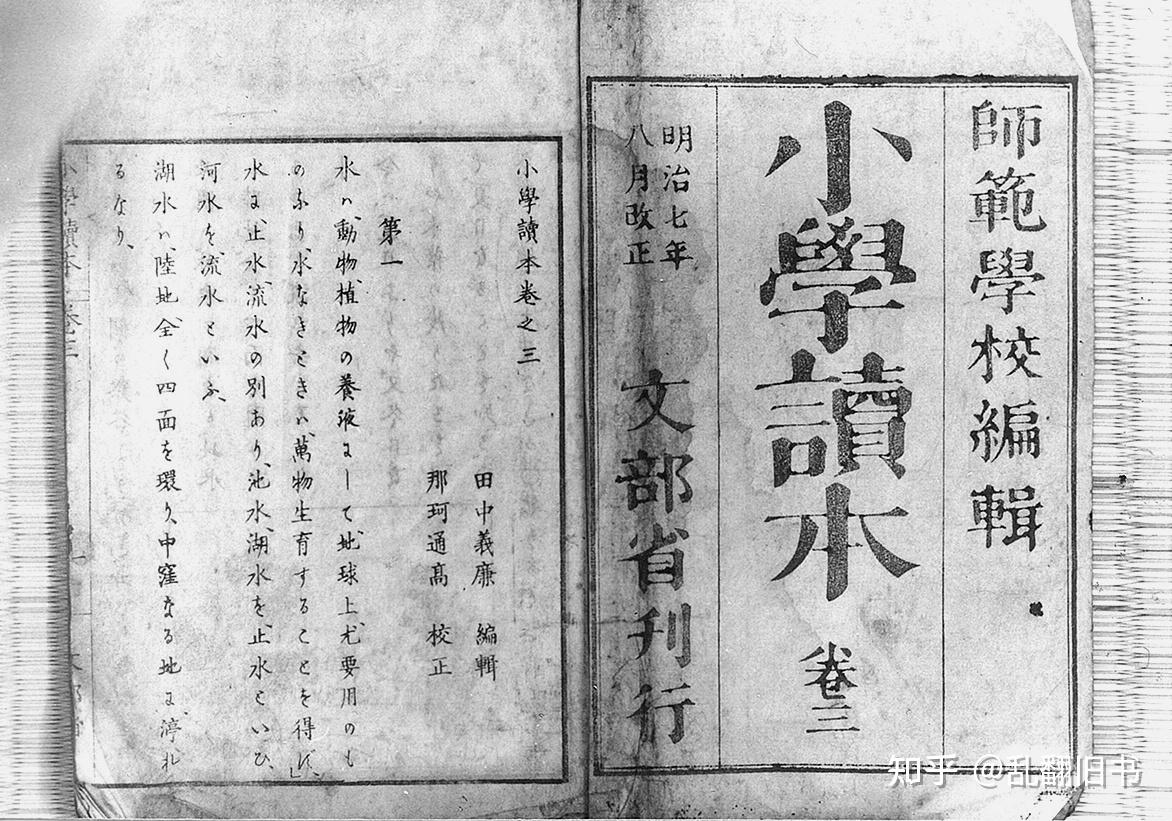 師範學校編輯
小學讀本 卷三
明治七年
八月改正
文部省刊行
小學讀本卷之三
田中義廉 編輯
那珂通高 校正
第一
水ハ、動物、植物の養液にして、地球上、尤、要用のも
のなり、水なきときハ、萬物生育することを得ず、」
水に、止水、流水の別あり、池水、湖水を、止水といひ、
河水を、流水といふ、
湖水ハ、陸地、全く四面を環り、中窪なる地に、渟れ
るなり、
小學讀本 卷三
知乎 @乱翻旧书